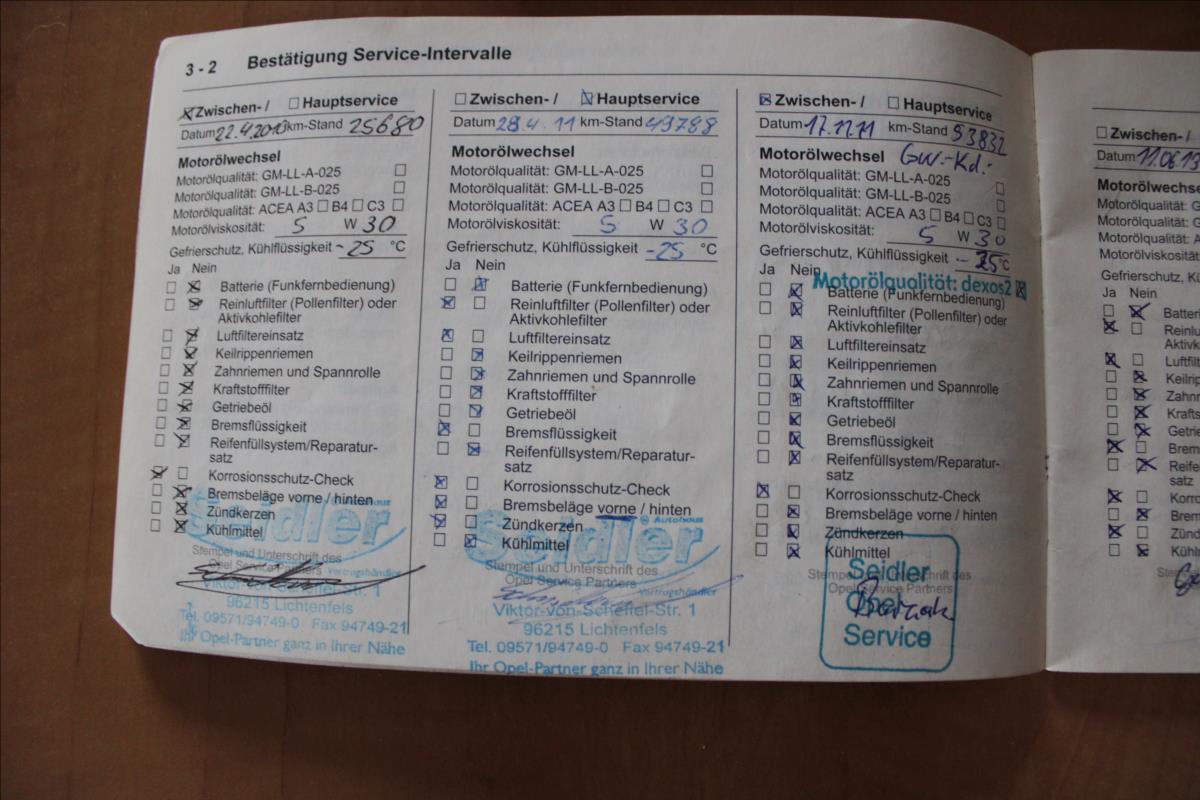 3 - 2 Bestätigung Service-Intervalle
Zwischen- / Hauptservice
Datum 22.4.2010 km-Stand 25680
Motorölwechsel
Motorölqualität: GM-LL-A-025
Motorölqualität: GM-LL-B-025
Motorölqualität: ACEA A3 B4 C3
Motorölviskosität: 5 W 30
Gefrierschutz, Kühlflüssigkeit -25 °C
Ja Nein
Batterie (Funkfernbedienung)
Reinluftfilter (Pollenfilter) oder
Aktivkohlefilter
Luftfiltereinsatz
Keilrippenriemen
Zahnriemen und Spannrolle
Kraftstofffilter
Getriebeöl
Bremsflüssigkeit
Reifenfüllsystem/Reparatur-
satz
Korrosionsschutz-Check
Bremsbeläge vorne / hinten
Zündkerzen
Kühlmittel
Seidler
Stempel und Unterschrift des
Opel Service Partners Vertragshändler
Viktor-von-Scheffel-Str. 1
96215 Lichtenfels
Tel. 09571/94749-0 Fax 94749-21
Ihr Opel-Partner ganz in Ihrer Nähe
Zwischen- / Hauptservice
Datum 28.4.11 km-Stand 49788
Motorölwechsel
Motorölqualität: GM-LL-A-025
Motorölqualität: GM-LL-B-025
Motorölqualität: ACEA A3 B4 C3
Motorölviskosität: 5 W 30
Gefrierschutz, Kühlflüssigkeit -25 °C
Ja Nein
Batterie (Funkfernbedienung)
Reinluftfilter (Pollenfilter) oder
Aktivkohlefilter
Luftfiltereinsatz
Keilrippenriemen
Zahnriemen und Spannrolle
Kraftstofffilter
Getriebeöl
Bremsflüssigkeit
Reifenfüllsystem/Reparatur-
satz
Korrosionsschutz-Check
Bremsbeläge vorne / hinten
Zündkerzen
Kühlmittel
Autohaus
Seidler
Stempel und Unterschrift des
Opel Service Partners Vertragshändler
Viktor-von-Scheffel-Str. 1
96215 Lichtenfels
Tel. 09571/94749-0 Fax 94749-21
Ihr Opel-Partner ganz in Ihrer Nähe
Zwischen- / Hauptservice
Datum 17.11.11 km-Stand 53832
Motorölwechsel Gw.-Kd.:
Motorölqualität: GM-LL-A-025
Motorölqualität: GM-LL-B-025
Motorölqualität: ACEA A3 B4 C3
Motorölviskosität: 5 W 30
Gefrierschutz, Kühlflüssigkeit °C
Ja Nein
Motorölqualität: dexos2
Batterie (Funkfernbedienung)
Reinluftfilter (Pollenfilter) oder
Aktivkohlefilter
Luftfiltereinsatz
Keilrippenriemen
Zahnriemen und Spannrolle
Kraftstofffilter
Getriebeöl
Bremsflüssigkeit
Reifenfüllsystem/Reparatur-
satz
Korrosionsschutz-Check
Bremsbeläge vorne / hinten
Zündkerzen
Kühlmittel
Stempel und Unterschrift des
Opel Service Partners
Seidler
Opel
Service
Zwischen- /
Datum 11.06.13
Motorölwechse
Motorölqualität: G
Motorölqualität: G
Motorölqualität: A
Motorölviskosität
Gefrierschutz, Kü
Ja Nein
Batterie
Reinlu
Aktivk
Luftfil
Keilrip
Zahnr
Krafts
Getrie
Brem
Reife
satz
Korro
Brem
Zünd
Kühl